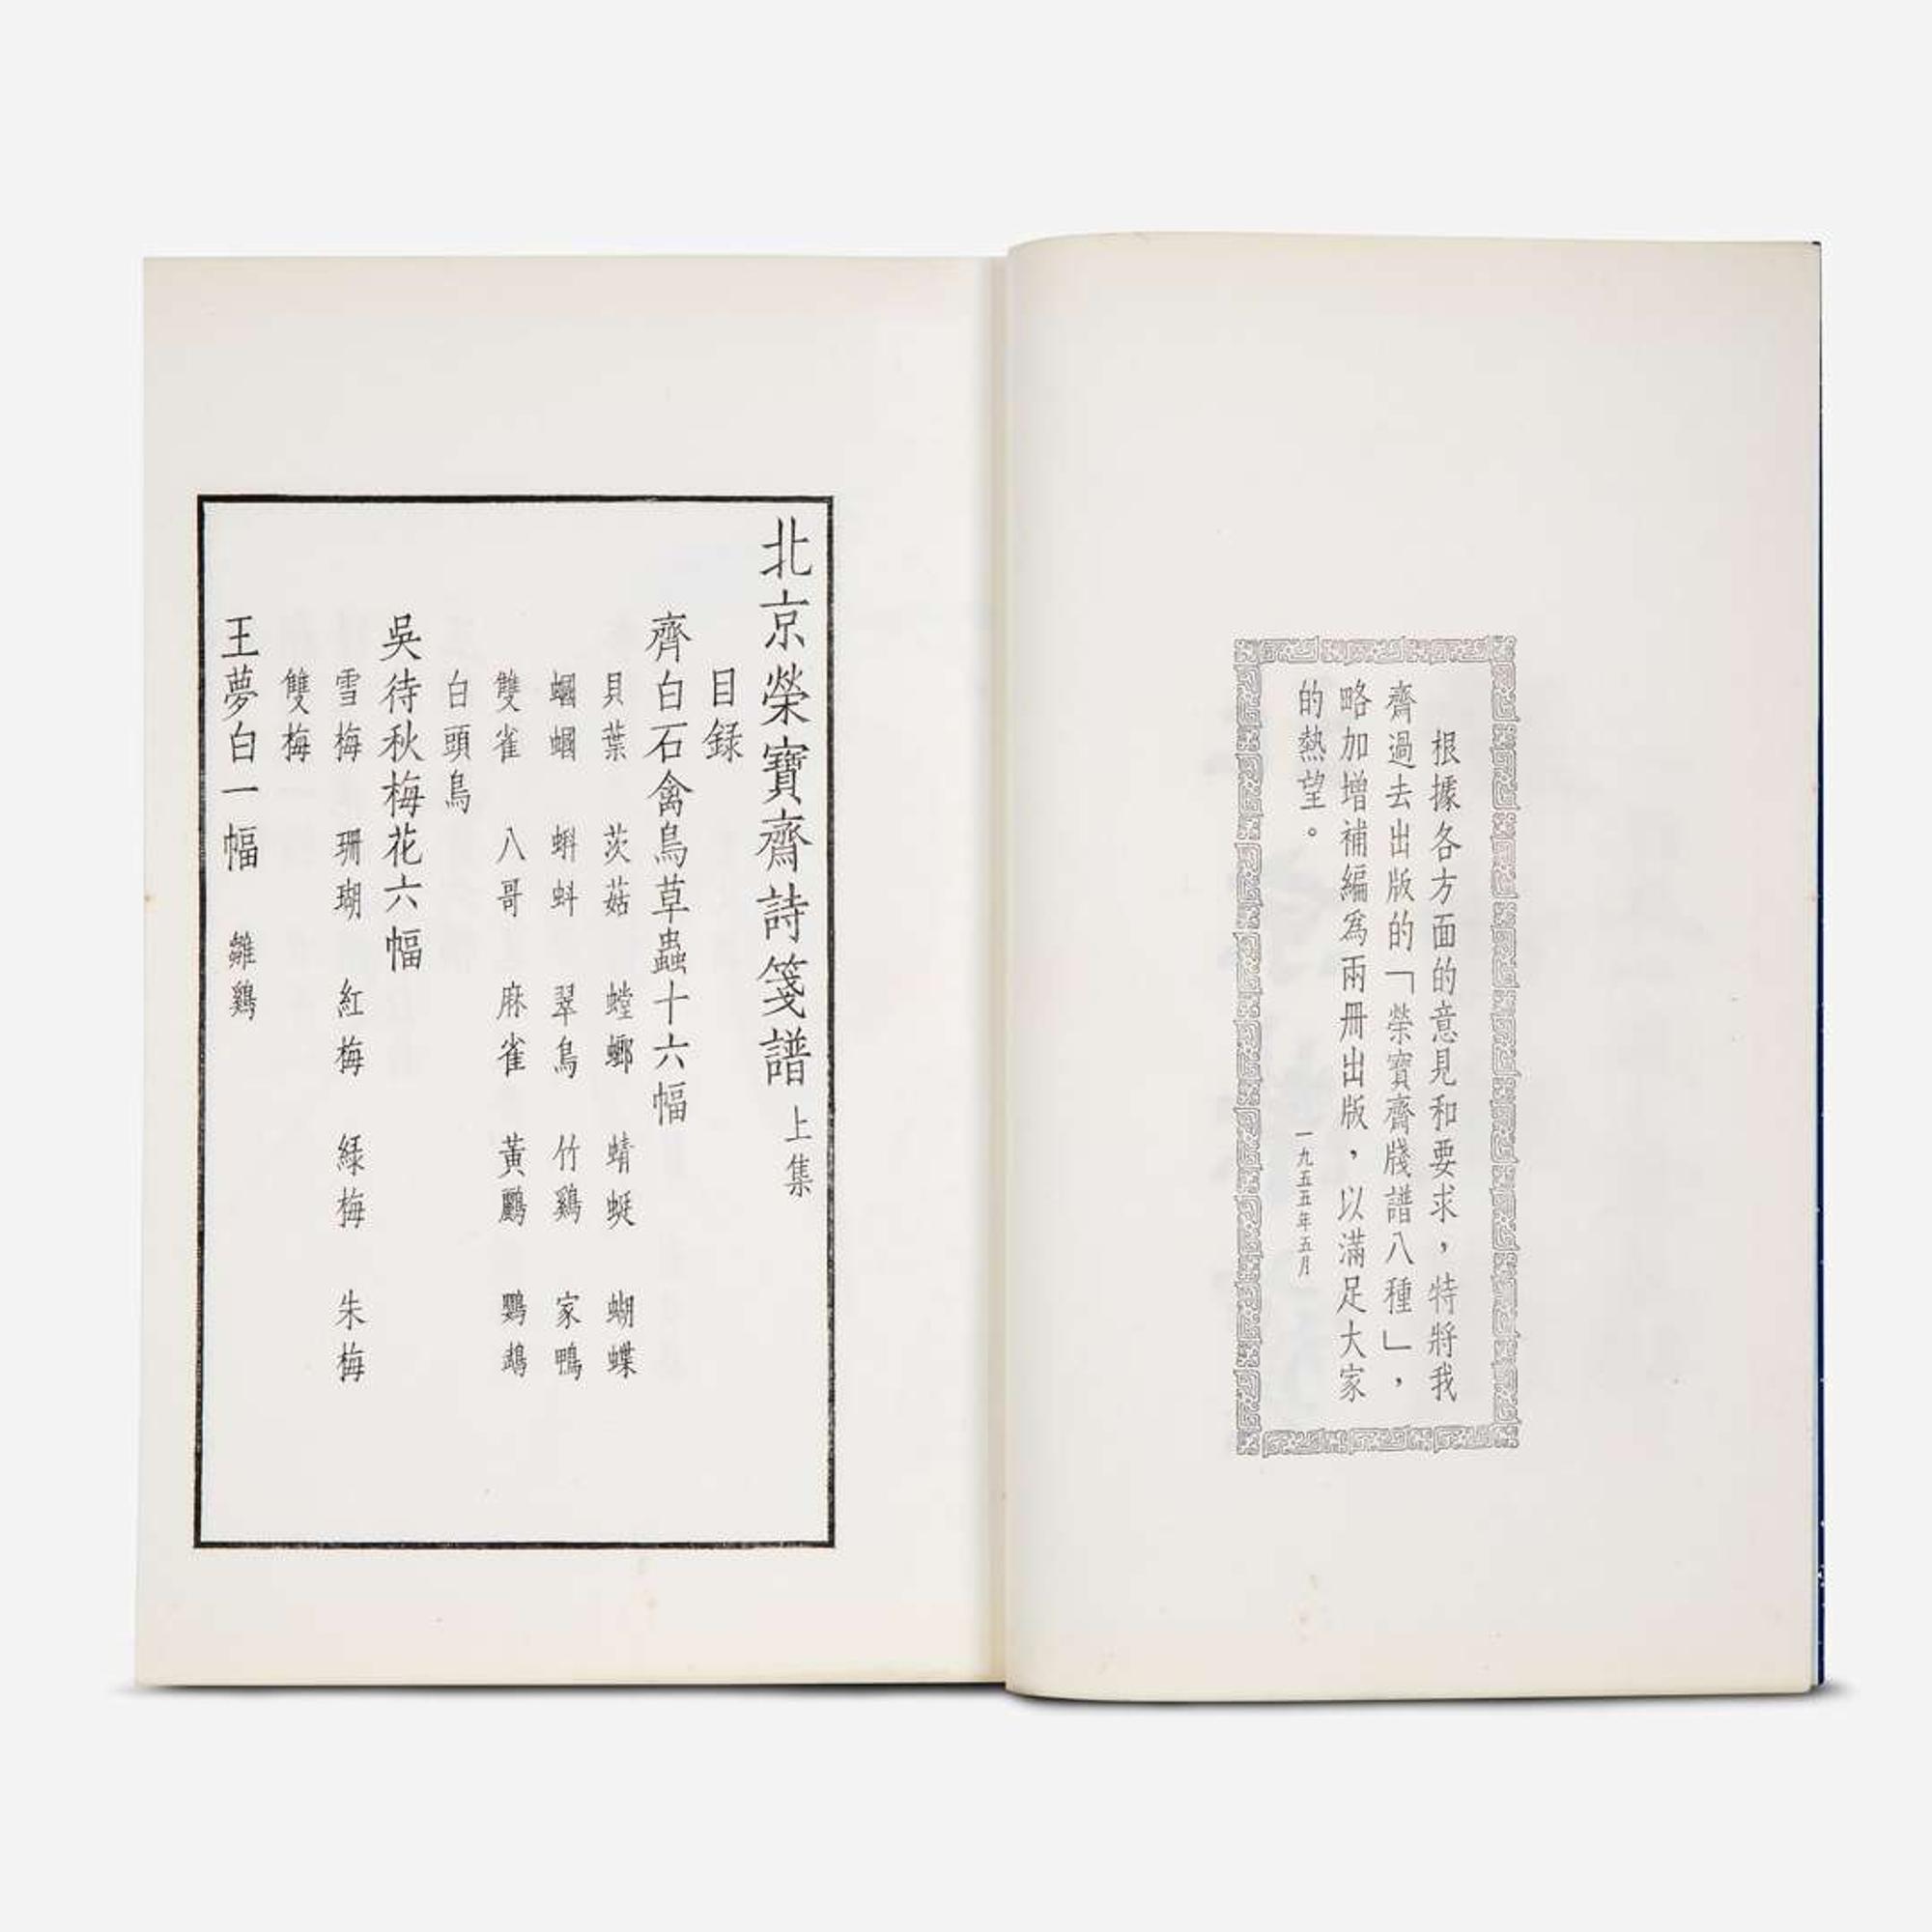 根據各方面的意見和要求，特將我
齊過去出版的「榮寶齊牋譜八種」，
略加增補編爲兩冊出版，以滿足大家
的熱望。 一九五五年五月
北京榮寶齋詩箋譜 上集
目録
齊白石禽鳥草蟲十六幅
貝葉 茨菇 螳螂 蜻蜓 蝴蝶
蟈蟈 蝌蚪 翠鳥 竹鷄 家鴨
雙雀 八哥 麻雀 黃鸝 鸚鵡
白頭鳥
吳待秋梅花六幅
雪梅 珊瑚 紅梅 緑梅 朱梅
雙梅
王夢白一幅 雛鷄